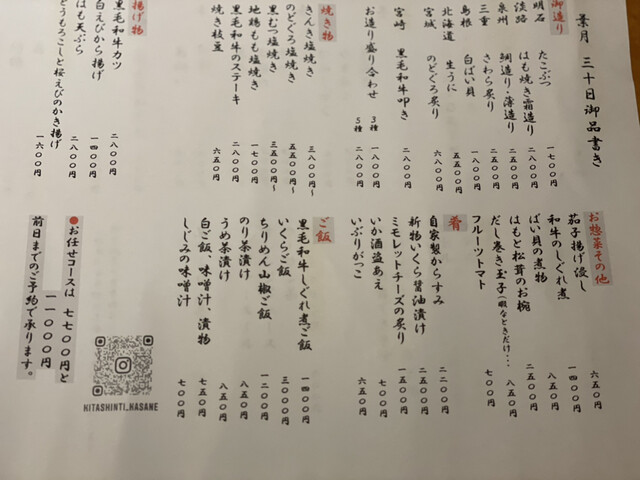 葉月 三十日御品書き
御造り
明石 たこぶつ 一七〇〇円
淡路 はも焼き霜造り 二八〇〇円
泉州 鯛造り・薄造り 二八〇〇円
三重 さわら炙り 二八〇〇円
島根 白ばい貝 一八〇〇円
北海道 生うに 五五〇〇円
宮城 のどぐろ炙り 六八〇〇円
宮崎 黒毛和牛叩き 二八〇〇円
お造り盛り合わせ 3種 一八〇〇円
5種 二八〇〇円
焼き物
きんき塩焼き 三八〇〇円〜
のどぐろ塩焼き 五五〇〇円〜
黒むつ塩焼き 三五〇〇円〜
地鶏もも塩焼き 一七〇〇円
黒毛和牛のステーキ 二八〇〇円
焼き枝豆 六五〇円
揚げ物
黒毛和牛カツ 二八〇〇円
白えびから揚げ 一四〇〇円
はも天ぷら 二八〇〇円
とうもろこしと桜えびのかき揚げ 一六〇〇円
お惣菜その他
茄子揚げ浸し 六五〇円
和牛のしぐれ煮 一〇〇〇円
ばい貝の煮物 八五〇円
はもと松茸のお椀 二五〇〇円
だし巻き玉子(暇なときだけ・・・ 八五〇円
フルーツトマト 七〇〇円
肴
自家製からすみ 二二〇〇円
新物いくら醤油漬け 二五〇〇円
ミモレットチーズの炙り 一五〇〇円
いか酒盗あえ 七〇〇円
いぶりがっこ 六五〇円
ご飯
黒毛和牛しぐれ煮ご飯 一四〇〇円
いくらご飯 三〇〇〇円
ちりめん山椒ご飯 一二〇〇円
のり茶漬け 八五〇円
うめ茶漬け 八五〇円
白ご飯、味噌汁、漬物 七五〇円
しじみの味噌汁 七〇〇円
●お任せコースは 七七〇〇円と
一一〇〇〇円
前日までのご予約で承ります。
KITASHINTI_NASANE